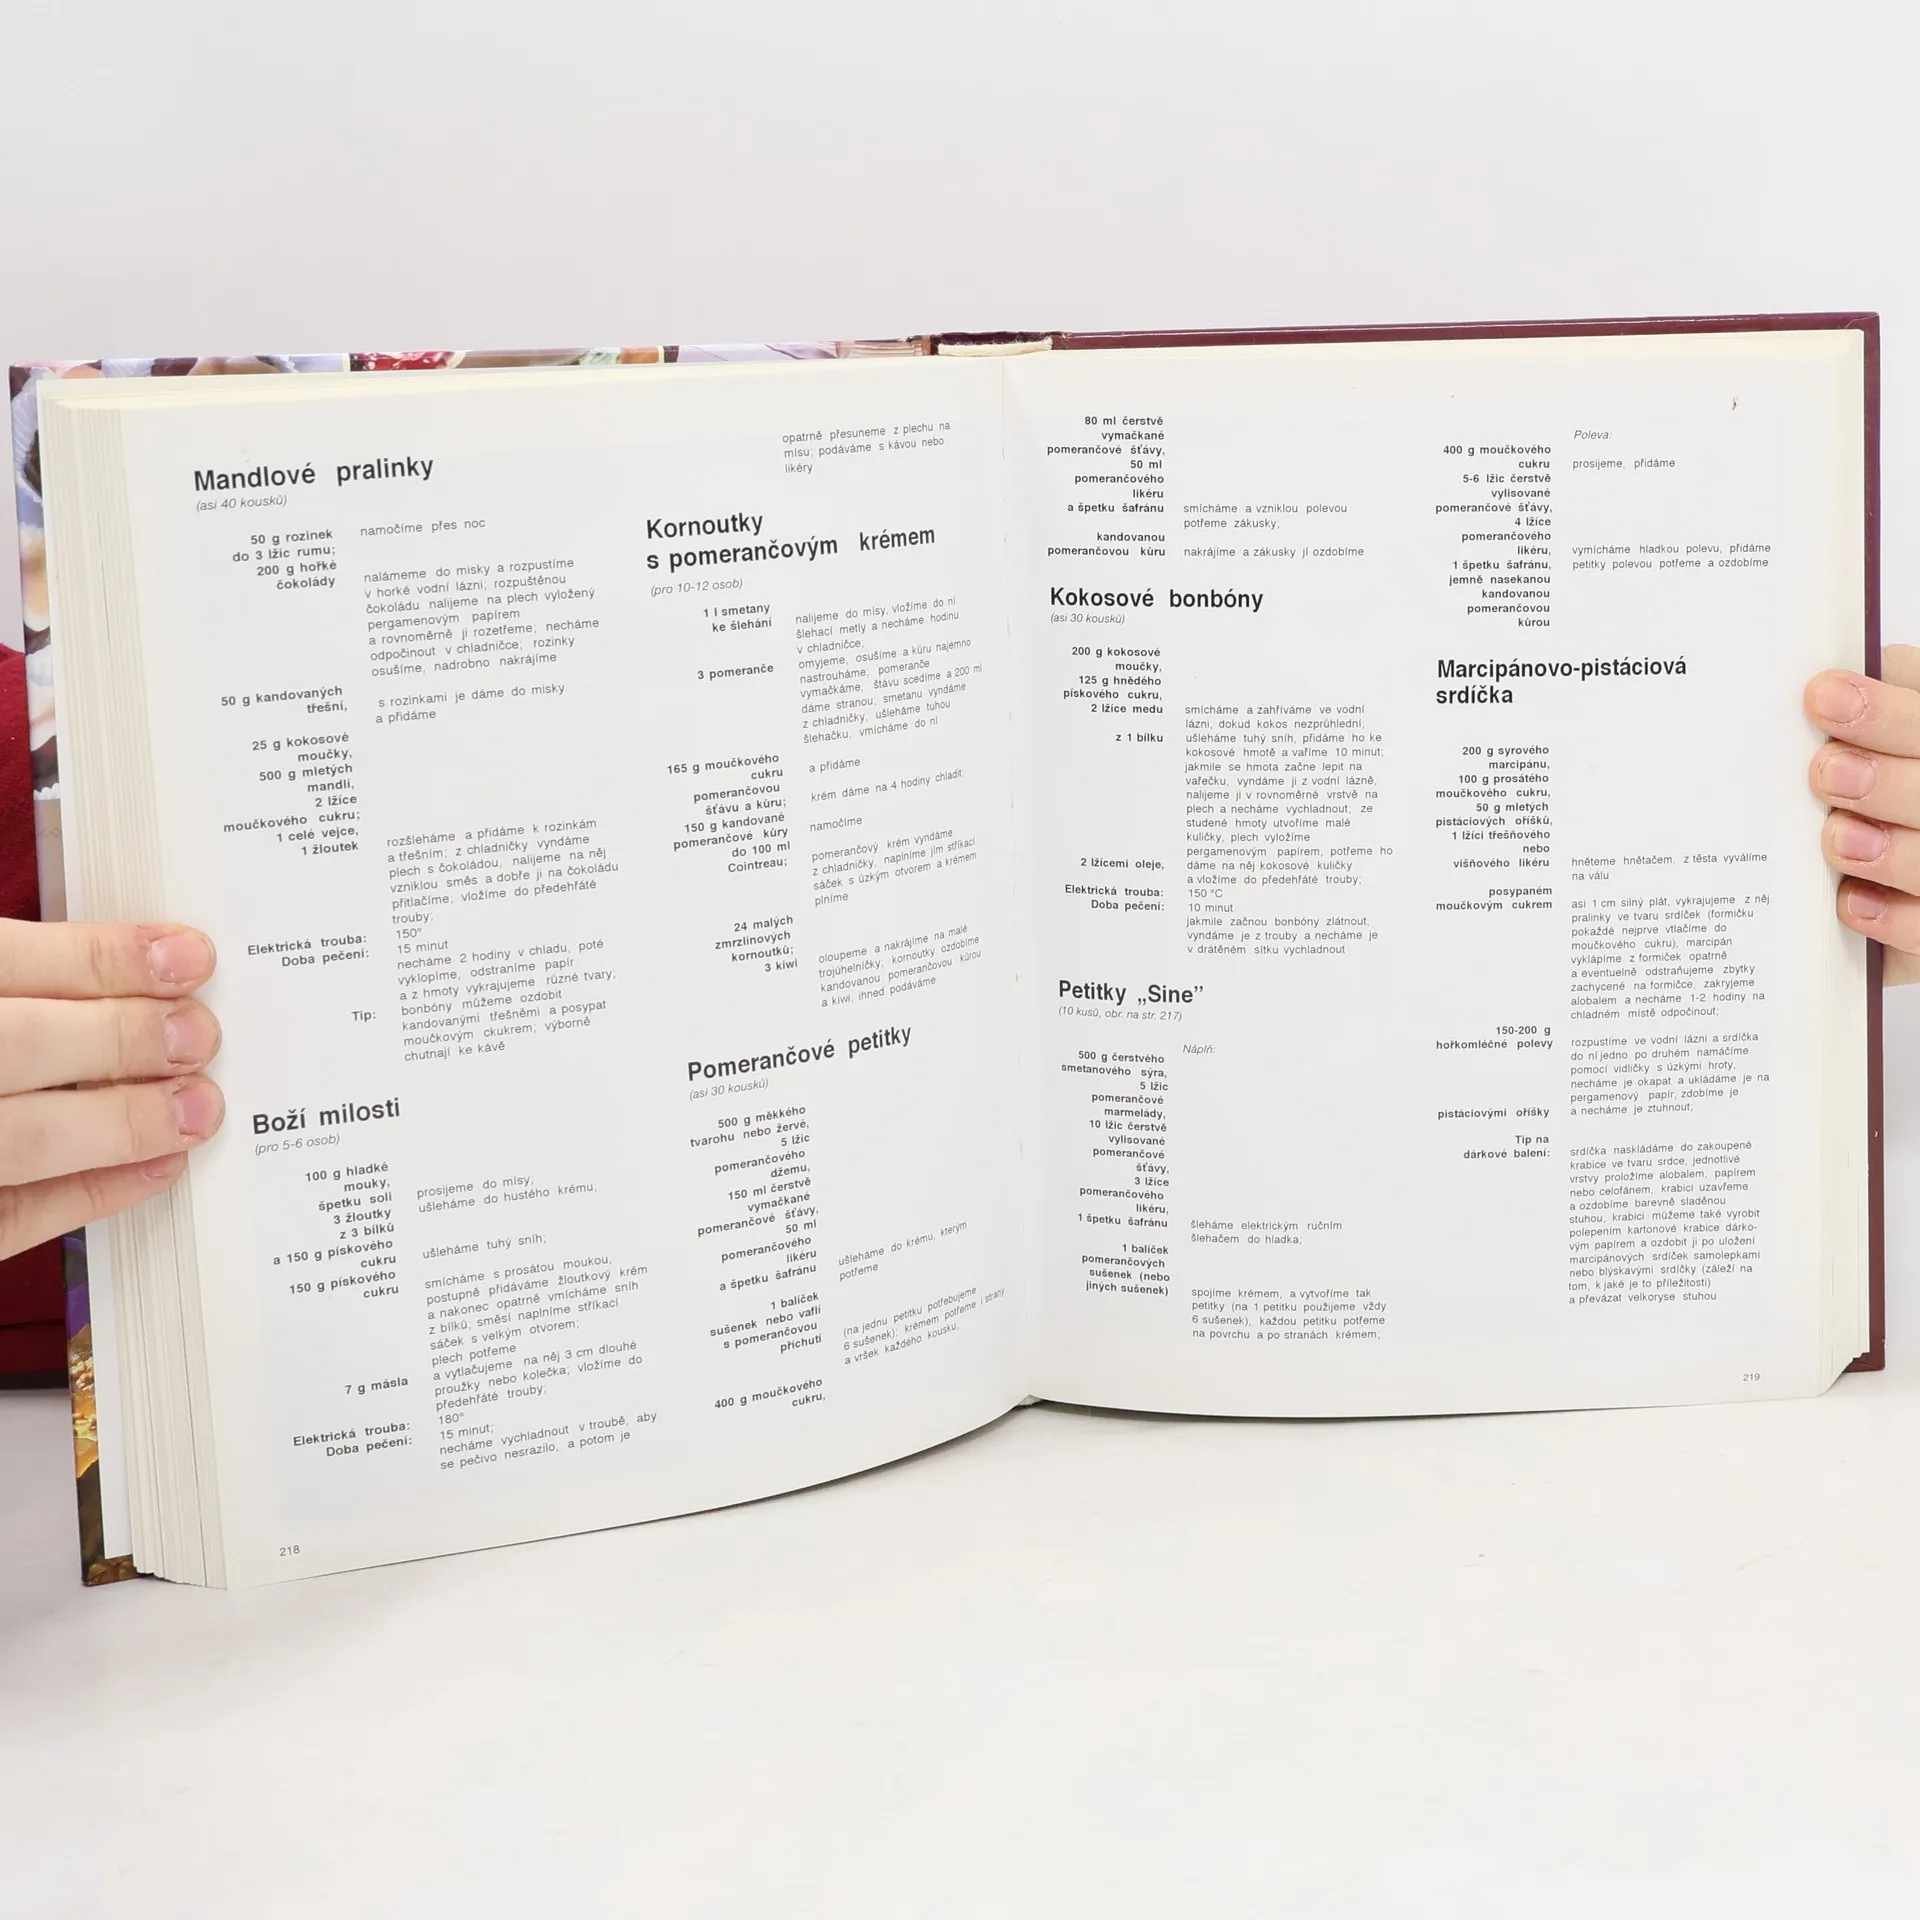 Mandlové pralinky
(asi 40 kousků)
50 g rozinek
do 3 lžic rumu;
namočíme přes noc
200 g hořké
čokolády
nalámeme do misky a rozpustíme
v horké vodní lázni; rozpuštěnou
čokoládu nalijeme na plech vyložený
pergamenovým papírem
a rovnoměrně ji rozetřeme; necháme
odpočinout v chladničce; rozinky
osušíme, nadrobno nakrájíme
50 g kandovaných
třešní,
s rozinkami je dáme do misky
a přidáme
25 g kokosové
moučky,
500 g mletých
mandlí,
2 lžíce
moučkového cukru;
1 celé vejce,
1 žloutek
rozšleháme a přidáme k rozinkám
a třešním; z chladničky vyndáme
plech s čokoládou, nalijeme na něj
vzniklou směs a dobře ji na čokoládu
přitlačíme; vložíme do předehřáté
trouby;
Elektrická trouba:
150°
Doba pečení:
15 minut
necháme 2 hodiny v chladu, poté
vyklopíme, odstraníme papír
a z hmoty vykrajujeme různé tvary;
Tip:
bonbóny můžeme ozdobit
kandovanými třešněmi a posypat
moučkovým ckukrem; výborně
chutnají ke kávě
Boží milosti
(pro 5-6 osob)
100 g hladké
mouky,
špetku soli
prosijeme do mísy;
3 žloutky
ušleháme do hustého krému;
z 3 bílků
a 150 g pískového
cukru
ušleháme tuhý sníh;
150 g pískového
cukru
smícháme s prosátou moukou,
postupně přidáváme žloutkový krém
a nakonec opatrně vmícháme sníh
z bílků; směsí naplníme stříkací
sáček s velkým otvorem;
plech potřeme
7 g másla
a vytlačujeme na něj 3 cm dlouhé
proužky nebo kolečka; vložíme do
předehřáté trouby;
Elektrická trouba:
180°
Doba pečení:
15 minut;
necháme vychladnout v troubě, aby
se pečivo nesrazilo, a potom je
218
opatrně přesuneme z plechu na
mísu; podáváme s kávou nebo
likéry
Kornoutky
s pomerančovým krémem
(pro 10-12 osob)
1 l smetany
ke šlehání
nalijeme do mísy, vložíme do ní
šlehací metly a necháme hodinu
v chladničce;
3 pomeranče
omyjeme, osušíme a kůru najemno
nastrouháme; pomeranče
vymačkáme, šťávu scedíme a 200 ml
dáme stranou; smetanu vyndáme
z chladničky, ušleháme tuhou
šlehačku, vmícháme do ní
165 g moučkového
cukru
a přidáme
pomerančovou
šťávu a kůru;
krém dáme na 4 hodiny chladit;
150 g kandované
pomerančové kůry
do 100 ml
Cointreau;
namočíme
pomerančový krém vyndáme
z chladničky, naplníme jím stříkací
sáček s úzkým otvorem a krémem
plníme
24 malých
zmrzlinových
kornoutků;
3 kiwi
oloupeme a nakrájíme na malé
trojúhelníčky; kornoutky ozdobíme
kandovanou pomerančovou kůrou
a kiwi; ihned podáváme
Pomerančové petitky
(asi 30 kousků)
500 g měkkého
tvarohu nebo žervé,
5 lžic
pomerančového
džemu,
150 ml čerstvě
vymačkané
pomerančové šťávy,
50 ml
pomerančového
likéru
a špetku šafránu
ušleháme do krému, kterým
potřeme
1 balíček
sušenek nebo vaflí
s pomerančovou
příchutí
(na jednu petitku potřebujeme
6 sušenek); krémem potřeme i strany
a vršek každého kousku;
400 g moučkového
cukru,
80 ml čerstvě
vymačkané
pomerančové šťávy,
50 ml
pomerančového
likéru
a špetku šafránu
smícháme a vzniklou polevou
potřeme zákusky;
kandovanou
pomerančovou kůru
nakrájíme a zákusky jí ozdobíme
Kokosové bonbóny
(asi 30 kousků)
200 g kokosové
moučky,
125 g hnědého
pískového cukru,
2 lžíce medu
smícháme a zahříváme ve vodní
lázni, dokud kokos nezprůhlední;
z 1 bílku
ušleháme tuhý sníh, přidáme ho ke
kokosové hmotě a vaříme 10 minut;
jakmile se hmota začne lepit na
vařečku, vyndáme ji z vodní lázně,
nalijeme ji v rovnoměrné vrstvě na
plech a necháme vychladnout; ze
studené hmoty utvoříme malé
kuličky, plech vyložíme
pergamenovým papírem, potřeme ho
2 lžícemi oleje,
dáme na něj kokosové kuličky
a vložíme do předehřáté trouby;
Elektrická trouba:
150 °C
Doba pečení:
10 minut
jakmile začnou bonbóny zlátnout,
vyndáme je z trouby a necháme je
v drátěném sítku vychladnout
Petitky „Sine”
(10 kusů, obr. na str. 217)
Náplň:
500 g čerstvého
smetanového sýra,
5 lžic
pomerančové
marmelády,
10 lžic čerstvě
vylisované
pomerančové
šťávy,
3 lžíce
pomerančového
likéru,
1 špetku šafránu
šleháme elektrickým ručním
šlehačem do hladka;
1 balíček
pomerančových
sušenek (nebo
jiných sušenek)
spojíme krémem, a vytvoříme tak
petitky (na 1 petitku použijeme vždy
6 sušenek), každou petitku potřeme
na povrchu a po stranách krémem;
Poleva:
400 g moučkového
cukru
prosijeme, přidáme
5-6 lžic čerstvě
vylisované
pomerančové šťávy,
4 lžíce
pomerančového
likéru,
vymícháme hladkou polevu, přidáme
1 špetku šafránu,
petitky polevou potřeme a ozdobíme
jemně nasekanou
kandovanou
pomerančovou
kůrou
Marcipánovo-pistáciová
srdíčka
200 g syrového
marcipánu,
100 g prosátého
moučkového cukru,
50 g mletých
pistáciových oříšků,
1 lžíci třešňového
nebo
višňového likéru
hněteme hnětačem, z těsta vyválíme
na válu
posypaném
moučkovým cukrem
asi 1 cm silný plát, vykrajujeme z něj
pralinky ve tvaru srdíček (formičku
pokaždé nejprve vtlačíme do
moučkového cukru), marcipán
vyklápíme z formiček opatrně
a eventuelně odstraňujeme zbytky
zachycené na formičce, zakryjeme
alobalem a necháme 1-2 hodiny na
chladném místě odpočinout;
150-200 g
hořkomléčné polevy
rozpustíme ve vodní lázni a srdíčka
do ní jedno po druhém namáčíme
pomocí vidličky s úzkými hroty,
necháme je okapat a ukládáme je na
pergamenový papír, zdobíme je
pistáciovými oříšky
a necháme je ztuhnout;
Tip na
dárkové balení:
srdíčka naskládáme do zakoupené
krabice ve tvaru srdce, jednotlivé
vrstvy proložíme alobalem, papírem
nebo celofánem, krabici uzavřeme
a ozdobíme barevně sladěnou
stuhou; krabici můžeme také vyrobit
polepením kartonové krabice dárko-
vým papírem a ozdobit ji po uložení
marcipánových srdíček samolepkami
nebo blýskavými srdíčky (záleží na
tom, k jaké je to příležitosti)
a převázat velkoryse stuhou
219